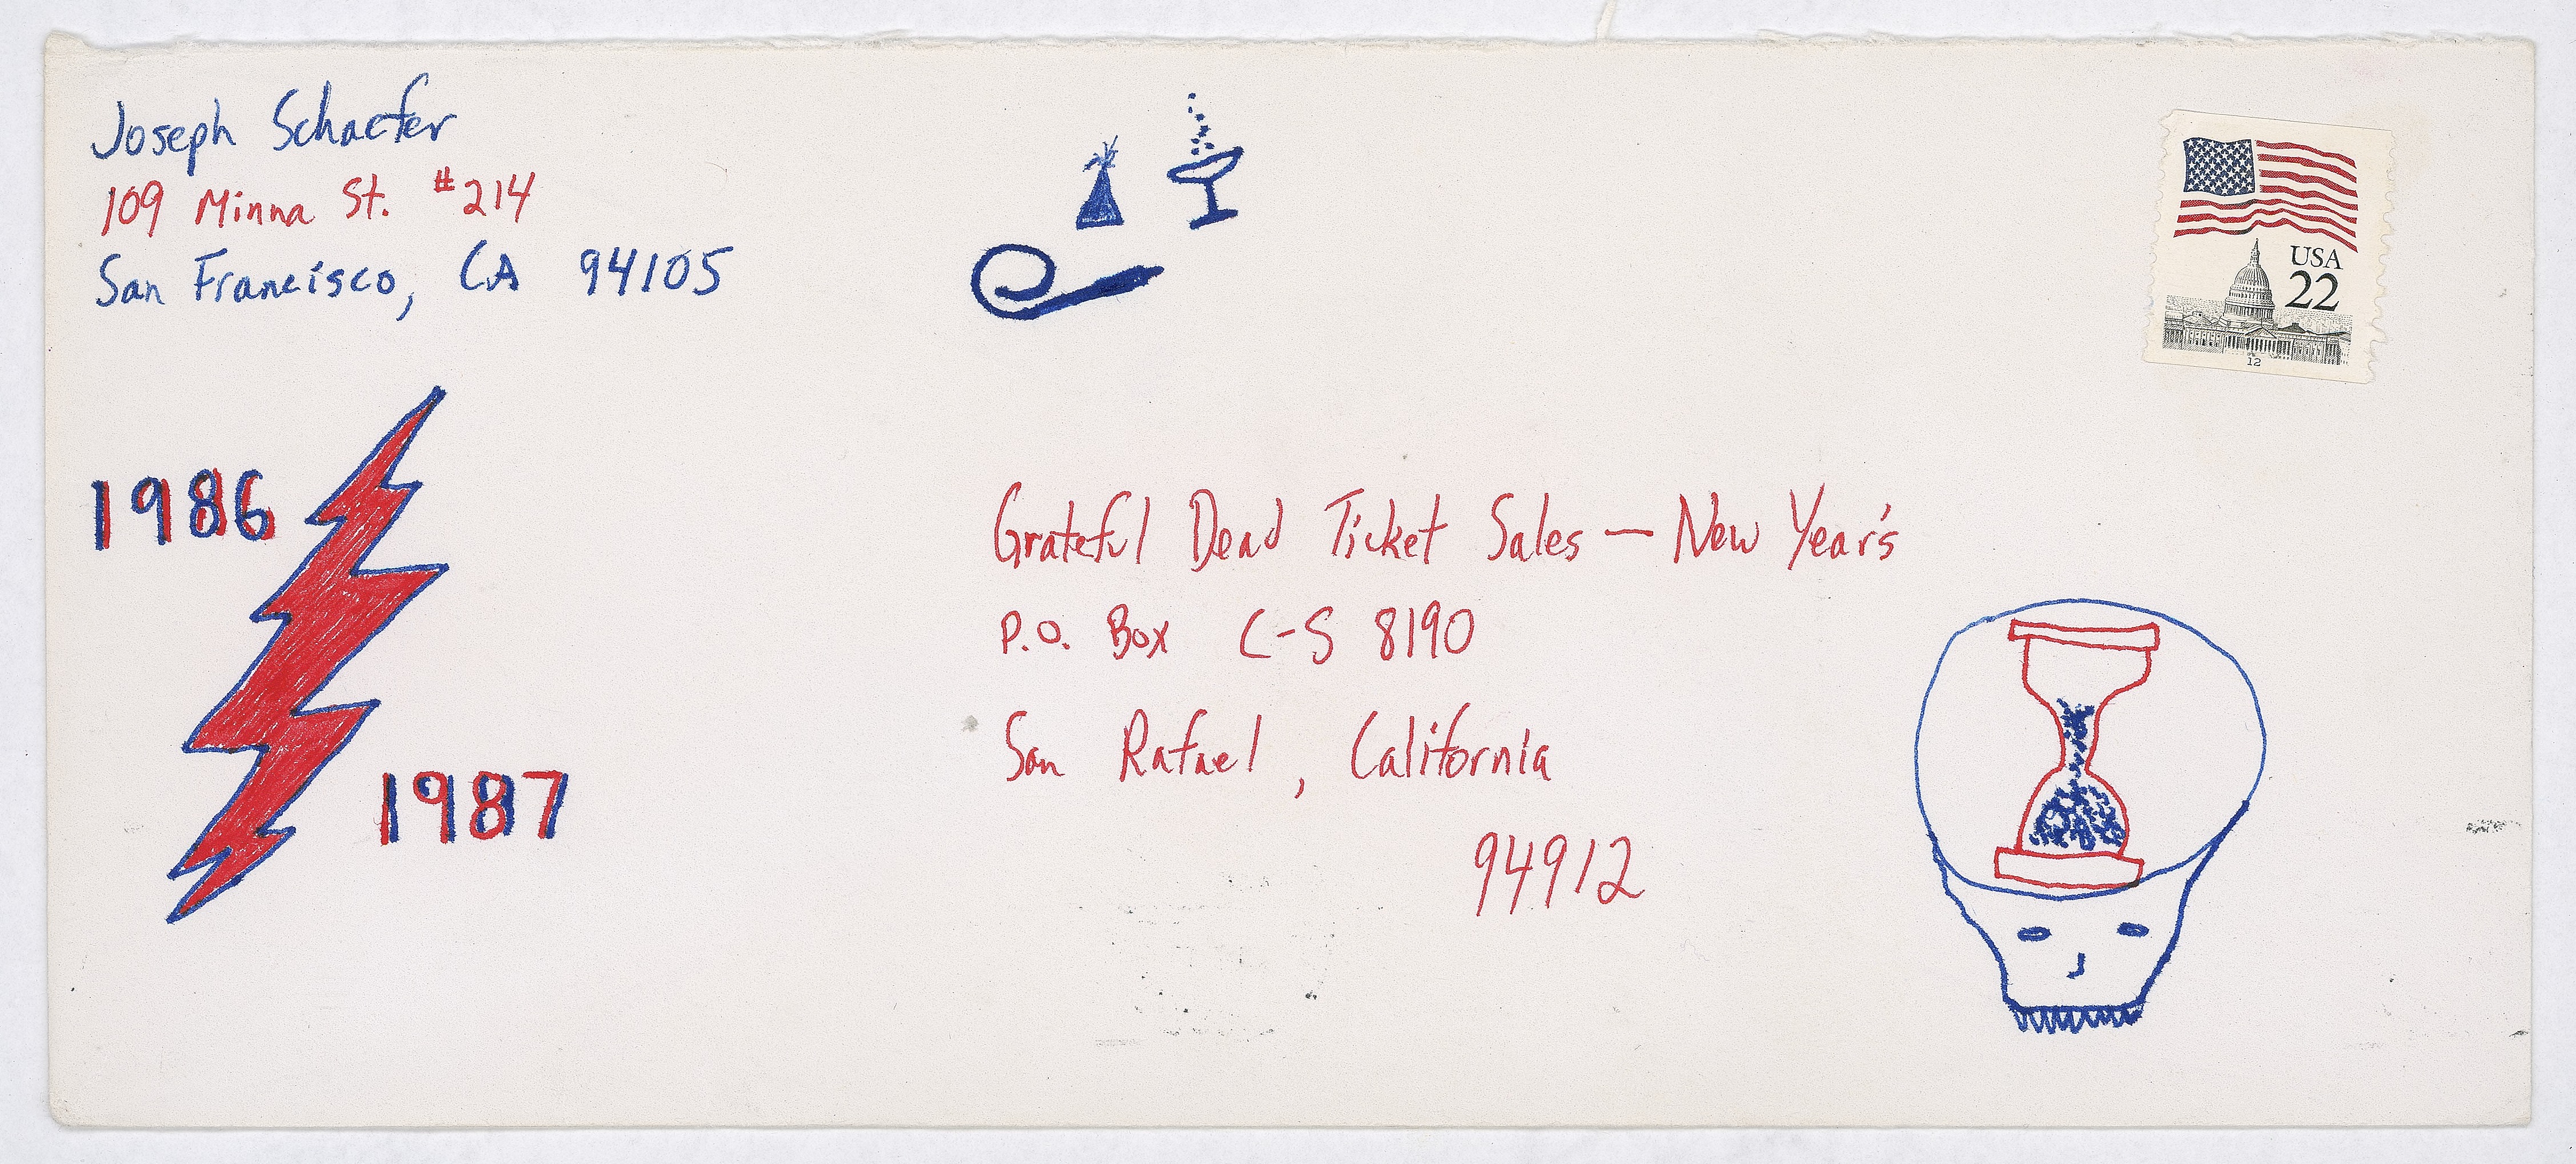 Joseph Schaefer
109 Minna St. #214
San Francisco, CA 94105
USA
22
12
1986
1987
Grateful Dead Ticket Sales — New Year's
P.O. Box C-S 8190
San Rafael, California
94912